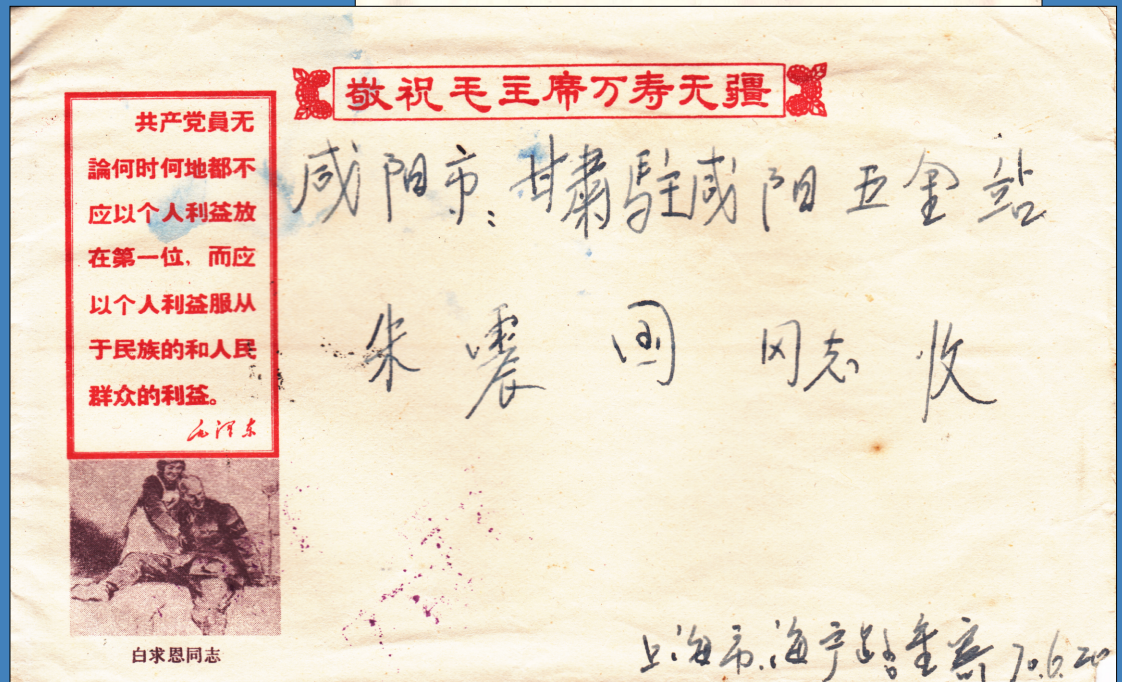 敬祝毛主席万寿无疆
共产党員无
論何时何地都不
应以个人利益放
在第一位，而应
以个人利益服从
于民族的和人民
群众的利益。
毛泽东
白求恩同志
咸阳市：甘肅駐咸阳五金站
朱震国 同志 收
上海市.海宁路 70.6.20